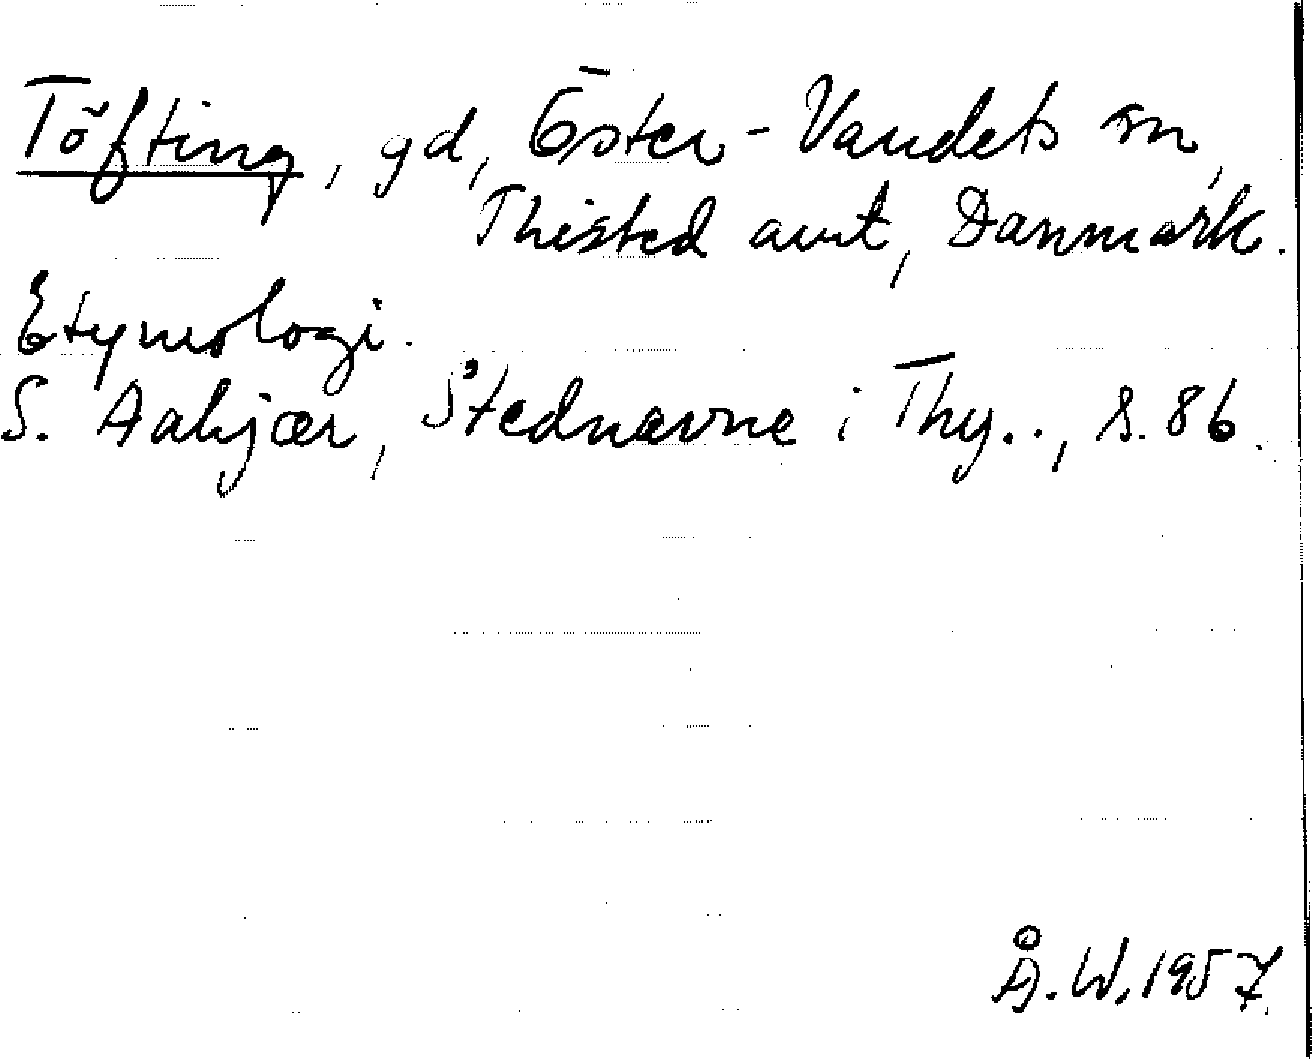 Töfting, gd, Öster-Vandets sn,
Thisted amt, Danmark.
Etymologi.
S. Aakjær, Stednavne i Thy.., s. 86.
Å.W. 1957